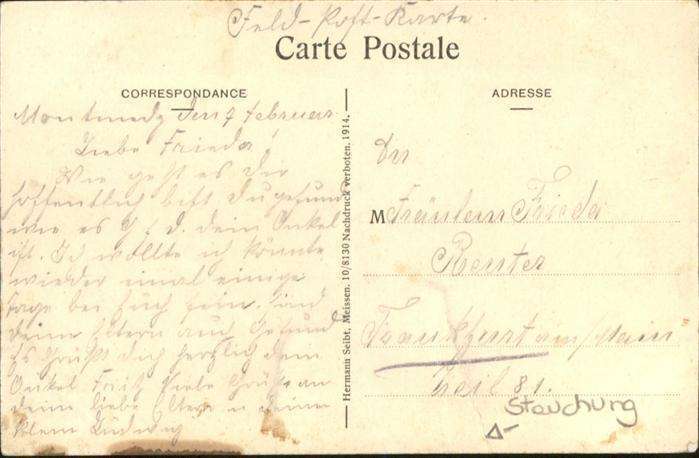 Feld-Post-Karte.
Carte Postale
CORRESPONDANCE
Montmedy den 9 Februar.
Liebe Frieda!
Wie geht es Dir
hoffentlich bist Du gesund
wie es G. s. D. dein Onkel
ist. Ich wollte ich könnte
wieder einmal einige
Tage bei Euch sein. Sind
deine Eltern auch Gesund
Es Grüßt dich herzlich dein
Onkel Fritz viele Grüße an
deine liebe Eltern u deinen
Ludwig
Hermann Seibt, Meissen. 10/8130 Nachdruck verboten. 1914.
ADRESSE
An
M Fräulein Frieda
Reuter
Frankfurt am Main
Zeil 81.
Stauchung